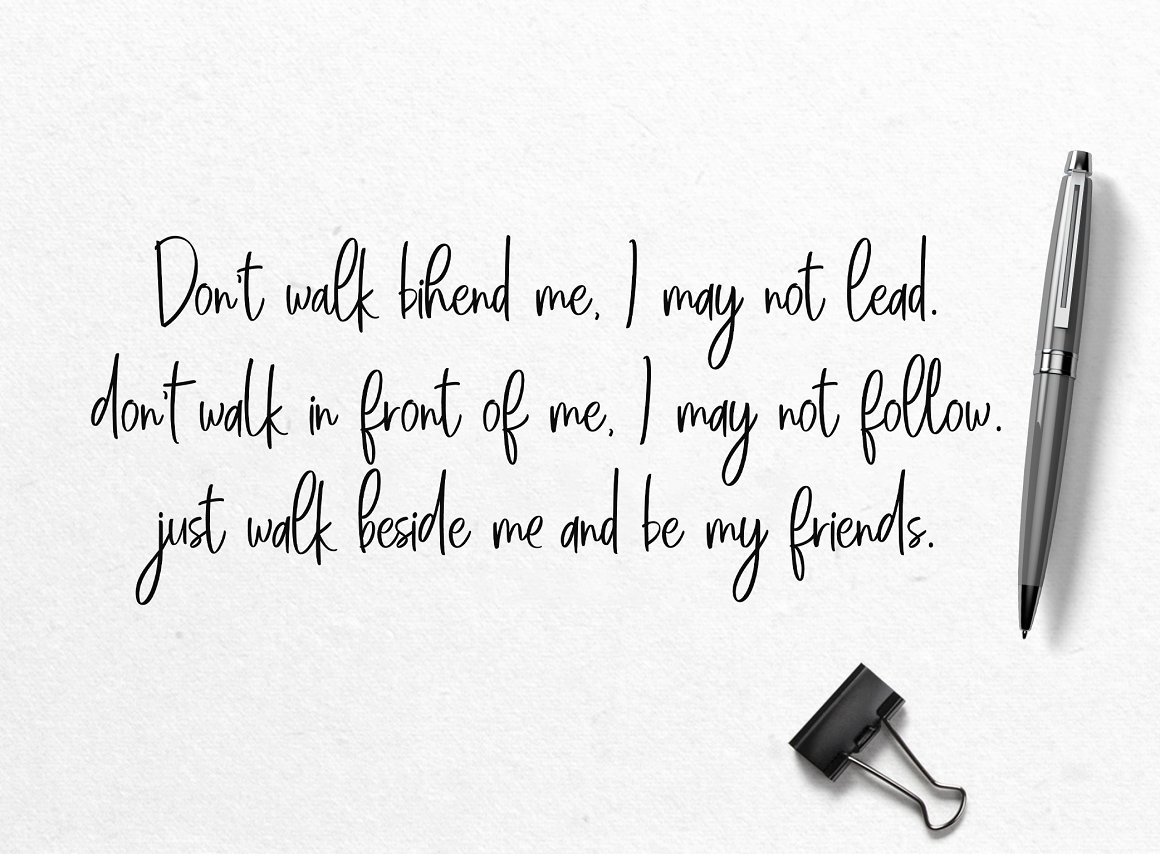 Don't walk bihend me, I may not lead.
don't walk in front of me, I may not follow.
just walk beside me and be my friends.